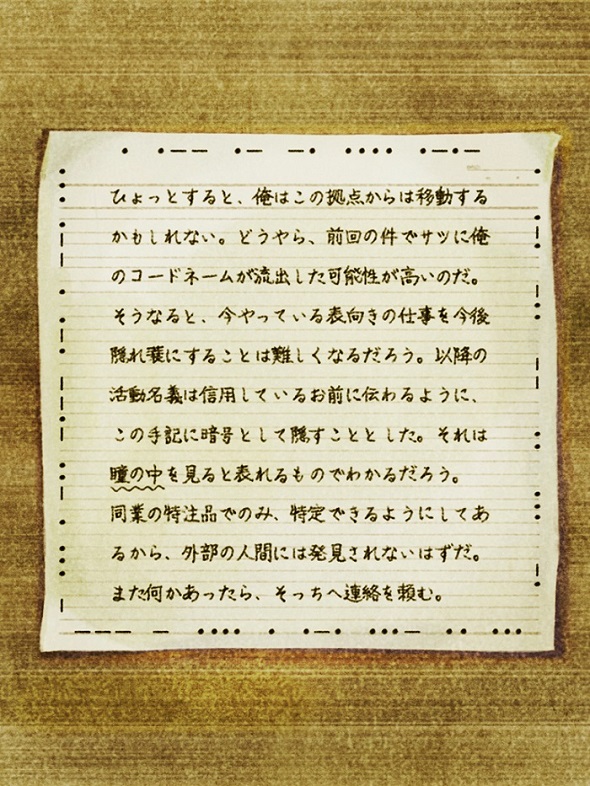 ひょっとすると、俺はこの拠点からは移動する
かもしれない。どうやら、前回の件でサツに俺
のコードネームが流出した可能性が高いのだ。
そうなると、今やっている表向きの仕事を今後
隠れ蓑にすることは難しくなるだろう。以降の
活動名義は信用しているお前に伝わるように、
この手記に暗号として隠すこととした。それは
瞳の中を見ると表れるものでわかるだろう。
同業の特注品でのみ、特定できるようにしてあ
るから、外部の人間には発見されないはずだ。
また何かあったら、そっちへ連絡を頼む。